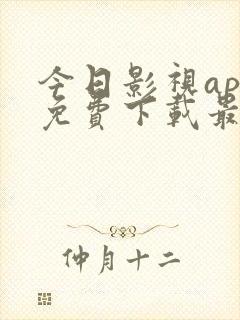 今日影視ap
免費下載最
仲月十二